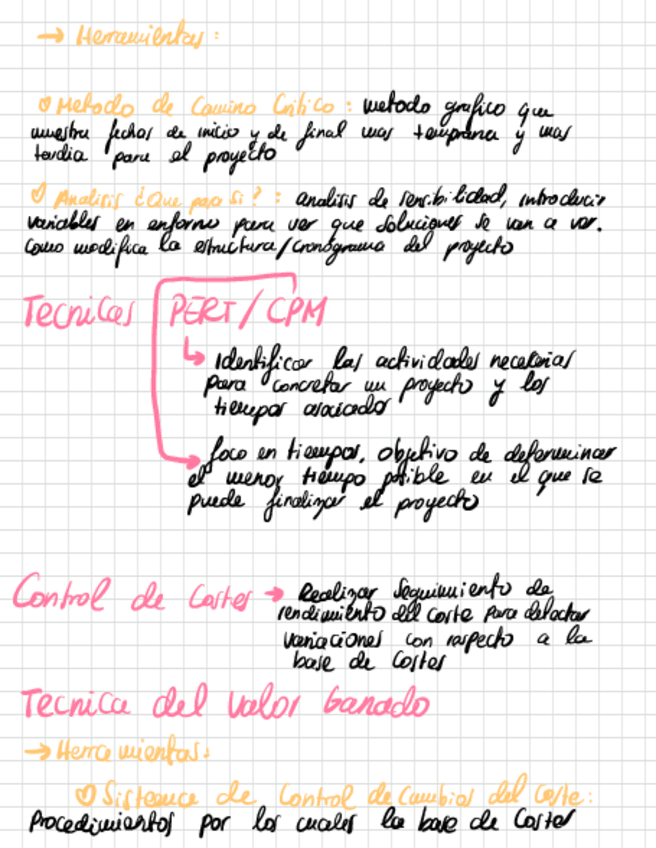 → Herramientas:
♡ Metodo de Camino Critico: metodo grafico que
muestra fechas de inicio y de final mas temprana y mas
tardia para el proyecto
♡ Analisis ¿Que pasa si?: analisis de sensibilidad, introducir
variables en entorno para ver que soluciones se van a ver.
Como modifica la estructura/cronograma del proyecto
Tecnicas PERT/CPM
↳ Identificar las actividades necesarias
para concretar un proyecto y los
tiempos asociados
→ foco en tiempos, objetivo de determinar
el menor tiempo posible en el que se
puede finalizar el proyecto
Control de Costes → Realizar Seguimiento de
rendimiento del Coste para detectar
variaciones con respecto a la
base de Costes
Tecnica del Valor Ganado
→ Herramientas:
♡ Sistema de Control de Cambios del Coste:
Procedimientos por los cuales la base de Costes